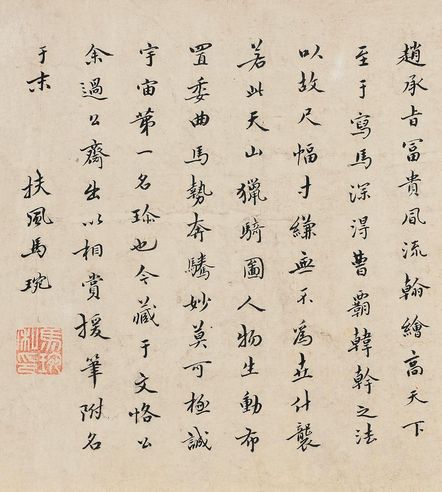 趙承旨富貴風流翰繪高天下
至于寫馬深得曹霸韓幹之法
以故尺幅寸縑無不爲世什襲
若此天山獵騎圖人物生動布
置委曲馬勢奔騰妙莫可極誠
宇宙第一名珍也今藏于文恪公
余過公齋出以相賞援筆附名
于末
扶風馬琬